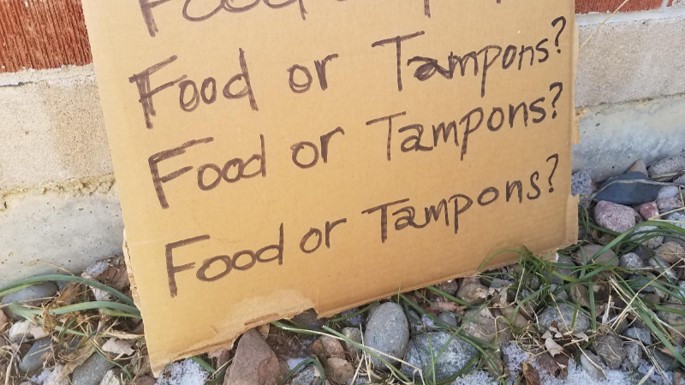 Food
Food or Tampons?
Food or Tampons?
Food or Tampons?